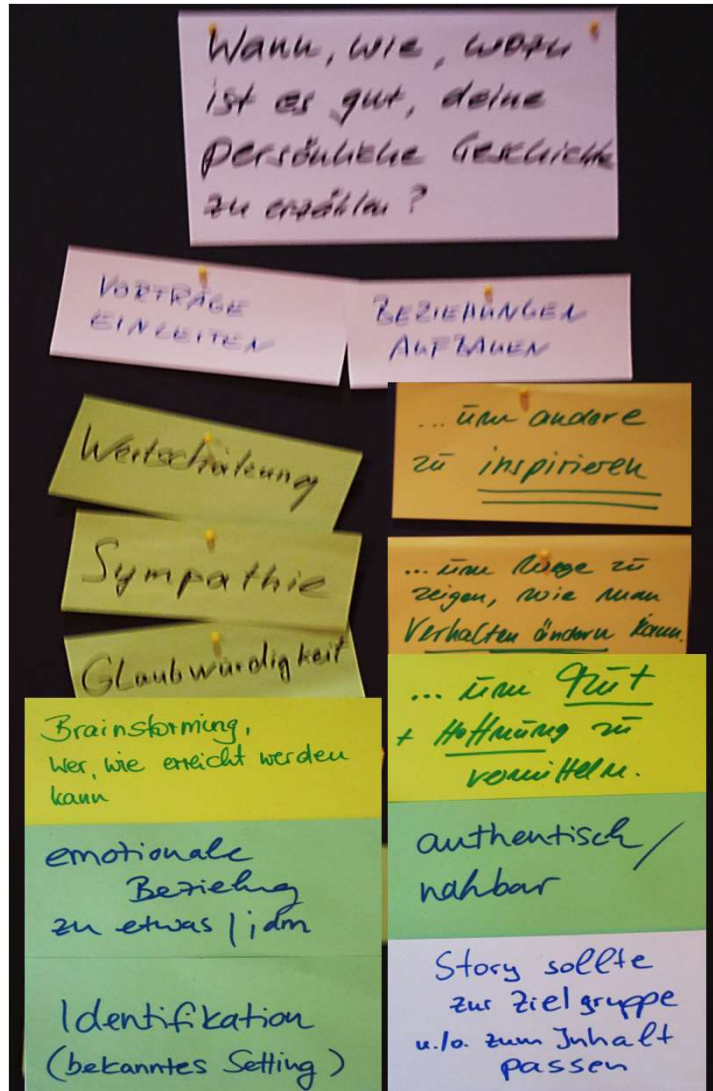 Wann, wie, wozu
ist es gut, deine
persönliche Geschichte
zu erzählen?
VORTRÄGE
EINLEITEN
BEZIEHUNGEN
AUFBAUEN
Wertschätzung
Sympathie
Glaubwürdigkeit
Brainstorming,
wer, wie erreicht werden
kann
emotionale
Beziehung
zu etwas / jdm
Identifikation
(bekanntes Setting)
... um andere
zu inspirieren
... um Wege zu
zeigen, wie man
Verhalten ändern kann.
... um Mut
+ Hoffnung zu
vermitteln.
authentisch /
nahbar
Story sollte
zur Zielgruppe
u./o. zum Inhalt
passen